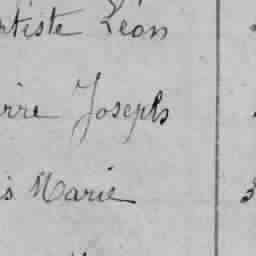 rtiste Léon
erre Joseph
is Marie